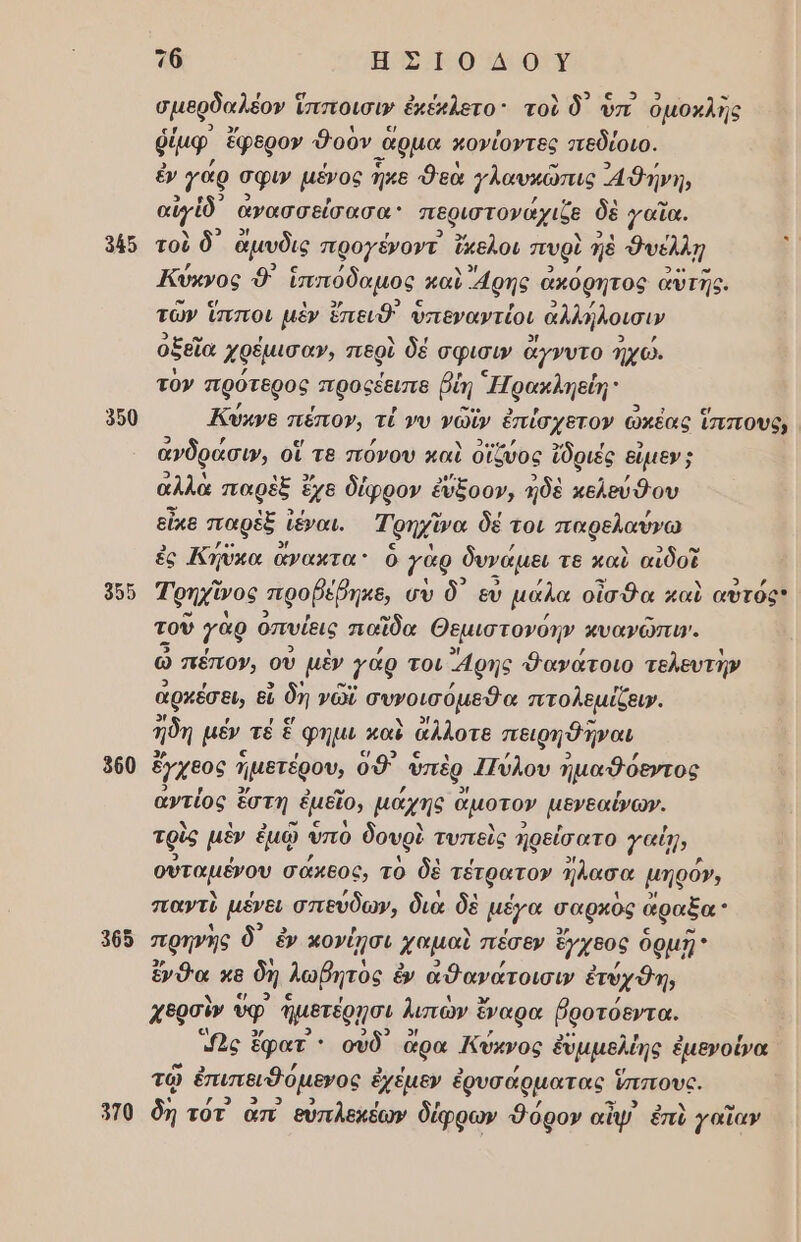 76 ΗΣΙΟΔΟΥ
σμερδαλέον ἵπποισιν ἐκέκλετο· τοὶ δ᾽ ὑπ᾽ ὁμοκλῆς
ῥίμφ᾽ ἔφερον θοὸν ἅρμα κονίοντες πεδίοιο.
ἐν γάρ σφιν μένος ἧκε θεὰ γλαυκῶπις Ἀθήνη,
αἰγίδ᾽ ἀνασσείσασα· περιστονάχιζε δὲ γαῖα.
345 τοὶ δ᾽ ἄμυδις προγένοντ᾽ ἴκελοι πυρὶ ἠὲ θυέλλῃ
Κύκνος θ᾽ ἱππόδαμος καὶ Ἄρης ἀκόρητος ἀϋτῆς.
τῶν ἵπποι μὲν ἔπειθ᾽ ὑπεναντίοι ἀλλήλοισιν
ὀξεῖα χρέμισαν, περὶ δέ σφισιν ἄγνυτο ἠχώ.
τὸν πρότερος προςέειπε βίη Ἡρακληείη·
350 Κύκνε πέπον, τί νυ νῶϊν ἐπίσχετον ὠκέας ἵππους,
ἀνδράσιν, οἵ τε πόνου καὶ ὀϊζύος ἴδριές εἰμεν;
ἀλλὰ παρὲξ ἔχε δίφρον ἐΰξοον, ἠδὲ κελεύθου
εἶκε παρὲξ ἰέναι. Τρηχῖνα δέ τοι παρελαύνω
ἐς Κήϋκα ἄνακτα· ὁ γὰρ δυνάμει τε καὶ αἰδοῖ
355 Τρηχῖνος προβέβηκε, σὺ δ᾽ εὖ μάλα οἶσθα καὶ αὐτός·
τοῦ γὰρ ὀπυίεις παῖδα Θεμιστονόην κυανῶπιν.
ὦ πέπον, οὐ μὲν γάρ τοι Ἄρης θανάτοιο τελευτὴν
ἀρκέσει, εἰ δὴ νῶϊ συνοισόμεθα πτολεμίζειν.
ἤδη μέν τέ ἕ φημι καὶ ἄλλοτε πειρηθῆναι
360 ἔγχεος ἡμετέρου, ὅθ᾽ ὑπὲρ Πύλου ἠμαθόεντος
ἀντίος ἔστη ἐμεῖο, μάχης ἄμοτον μενεαίνων.
τρὶς μὲν ἐμῷ ὑπὸ δουρὶ τυπεὶς ἠρείσατο γαίῃ,
οὐταμένου σάκεος, τὸ δὲ τέτρατον ἤλασα μηρόν,
παντὶ μένει σπεύδων, διὰ δὲ μέγα σαρκὸς ἄραξα·
365 πρηνὴς δ᾽ ἐν κονίῃσι χαμαὶ πέσεν ἔγχεος ὁρμῇ·
ἔνθα κε δὴ λωβητὸς ἐν ἀθανάτοισιν ἐτύχθη,
χερσὶν ὑφ᾽ ἡμετέρῃσι λιπὼν ἔναρα βροτόεντα.
Ὣς ἔφατ᾽· οὐδ᾽ ἄρα Κύκνος ἐϋμμελίης ἐμενοίνα
τῷ ἐπιπειθόμενος ἐχέμεν ἐρυσάρματας ἵππους.
370 δὴ τότ᾽ ἀπ᾽ εὐπλεκέων δίφρων θόρον αἶψ᾽ ἐπὶ γαῖαν